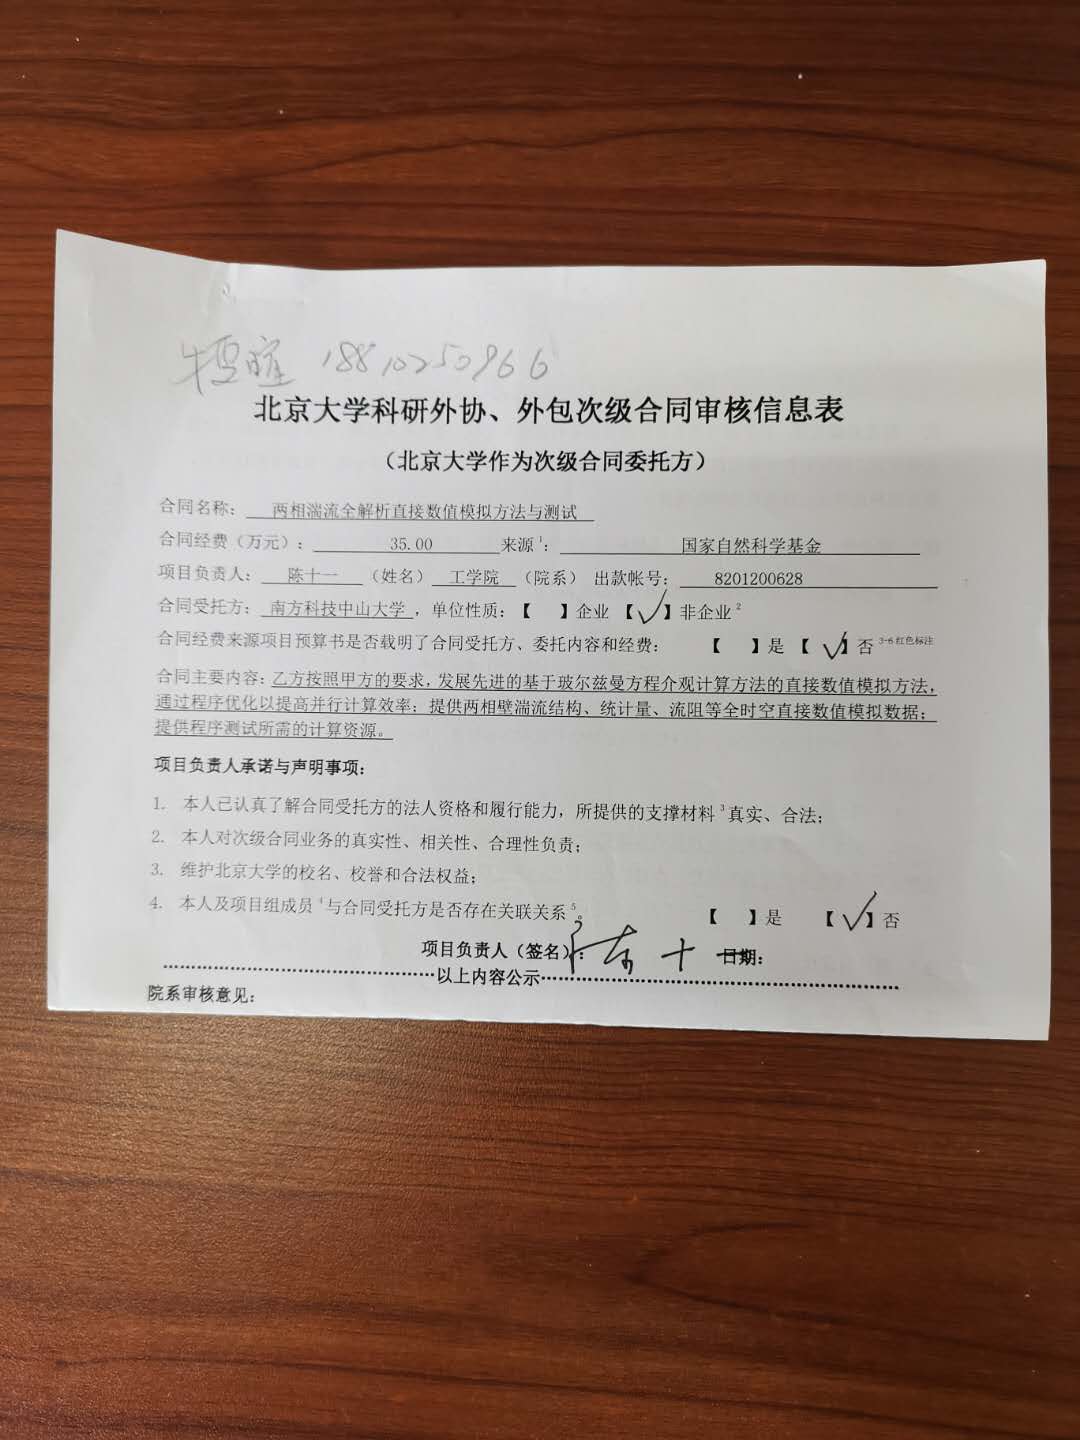 18810250966
北京大学科研外协、外包次级合同审核信息表
（北京大学作为次级合同委托方）
合同名称： 两相湍流全解析直接数值模拟方法与测试
合同经费（万元）： 35.00 来源1： 国家自然科学基金
项目负责人： 陈十一 （姓名） 工学院 （院系） 出款帐号： 8201200628
合同受托方： 南方科技中山大学 ，单位性质：【 】企业 【√】非企业2
合同经费来源项目预算书是否载明了合同受托方、委托内容和经费： 【 】是 【√】否 3-6红色标注
合同主要内容：乙方按照甲方的要求，发展先进的基于玻尔兹曼方程介观计算方法的直接数值模拟方法，
通过程序优化以提高并行计算效率；提供两相壁湍流结构、统计量、流阻等全时空直接数值模拟数据；
提供程序测试所需的计算资源。
项目负责人承诺与声明事项：
1. 本人已认真了解合同受托方的法人资格和履行能力，所提供的支撑材料3真实、合法；
2. 本人对次级合同业务的真实性、相关性、合理性负责；
3. 维护北京大学的校名、校誉和合法权益；
4. 本人及项目组成员4与合同受托方是否存在关联关系5。 【 】是 【√】否
项目负责人（签名）：陈十一 日期：
以上内容公示
院系审核意见：